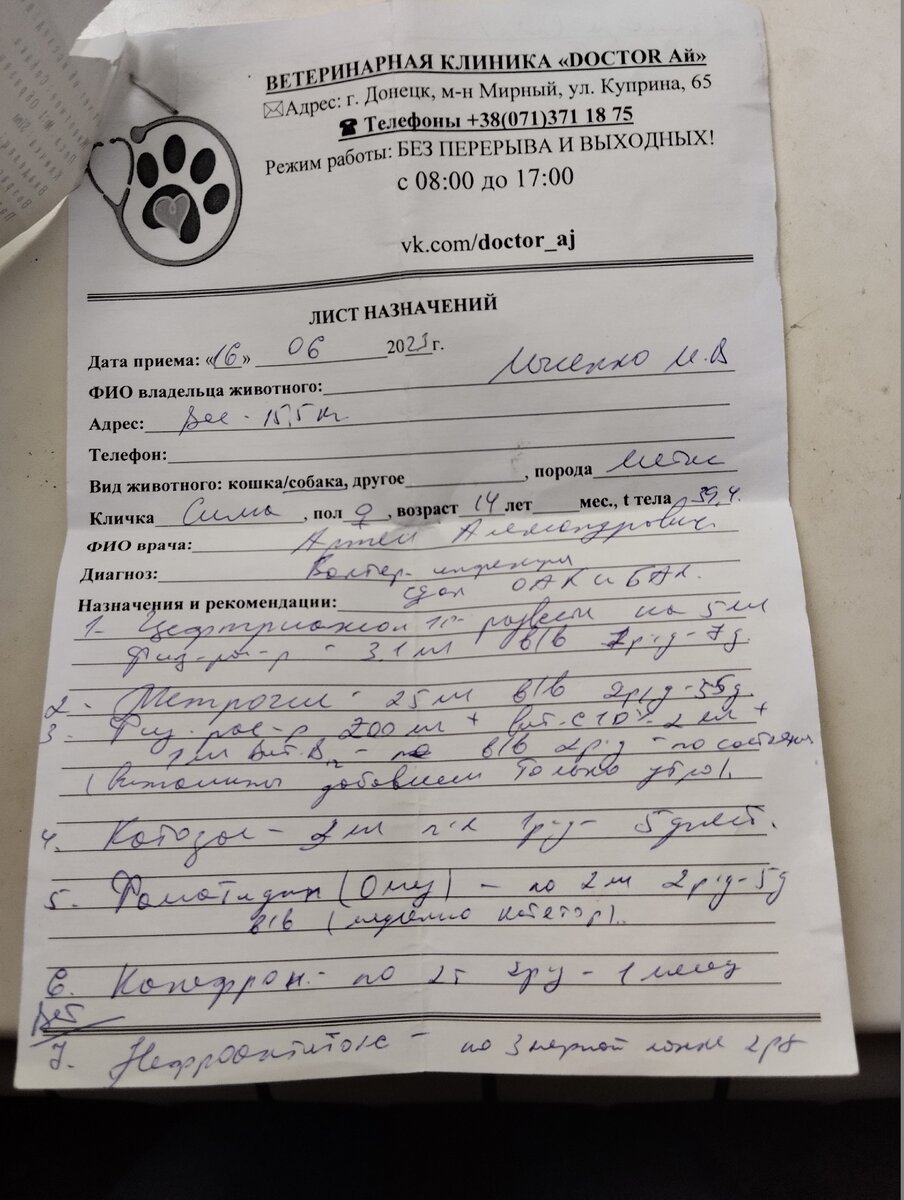 ВЕТЕРИНАРНАЯ КЛИНИКА «DOCTOR Ай»
Адрес: г. Донецк, м-н Мирный, ул. Куприна, 65
Телефоны +38(071)371 18 75
Режим работы: БЕЗ ПЕРЕРЫВА И ВЫХОДНЫХ!
с 08:00 до 17:00
vk.com/doctor_aj
ЛИСТ НАЗНАЧЕНИЙ
Дата приема: «16» 06 2023г.
ФИО владельца животного: И.В
Адрес: Вес - 15,5 кг
Телефон:
Вид животного: кошка/собака, другое , порода Метис
Кличка Сима , пол ♀ , возраст 14 лет мес., t тела 39,4.
ФИО врача: Артем Александрович.
Диагноз: Бактер. инфекция
Назначения и рекомендации: сдал ОАК и БАК.
1- Цефтриаксон 1г развести на 5 мл
Физ-рас-р - 3.1 мл в/в р/д - 7д.
2- Метрогил - 25 мл в/в 2р/д - 5д.
3. Физ. рас-р 200 мл + вит. С 10% - 2 мл +
1 мл Вит. В12 - в/в 2р/д - по состоянию
(Витамины добавляем только утро).
4. Катозал - 2 мл п/к 1р/д - 5 дней.
5. Фамотидин (Ому) - по 2 мл 2р/д - 5д
в/в (катетор).
6. по 2т 2р/д - 1 месяц
Вет
7. по 3 мерной ложке 2рд